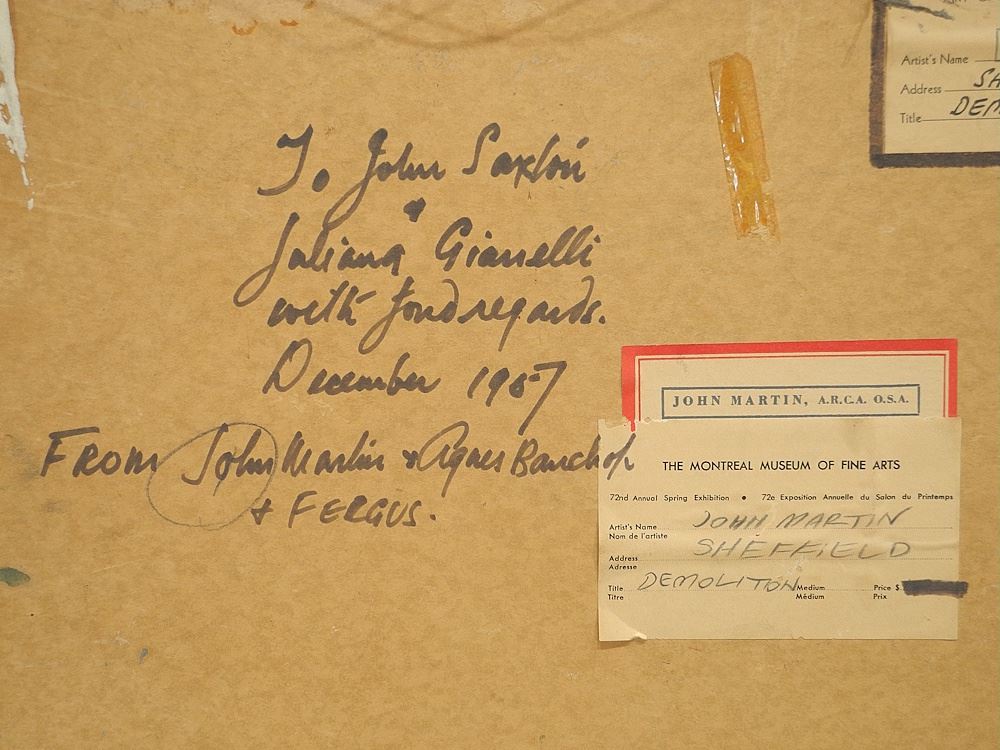 Artist's Name
Address SH
Title DEM
To John Saxton
&
Juliana Gianelli
with fond regards.
December 1987
FROM John Martin & Agnes Bauchop
+ FERGUS.
JOHN MARTIN, A.R.C.A. O.S.A.
THE MONTREAL MUSEUM OF FINE ARTS
72nd Annual Spring Exhibition • 72e Exposition Annuelle du Salon du Printemps
Artist's Name JOHN MARTIN
Nom de l'artiste
Address SHEFFIELD
Adresse
Title DEMOLITON Medium Price $
Titre Médium Prix